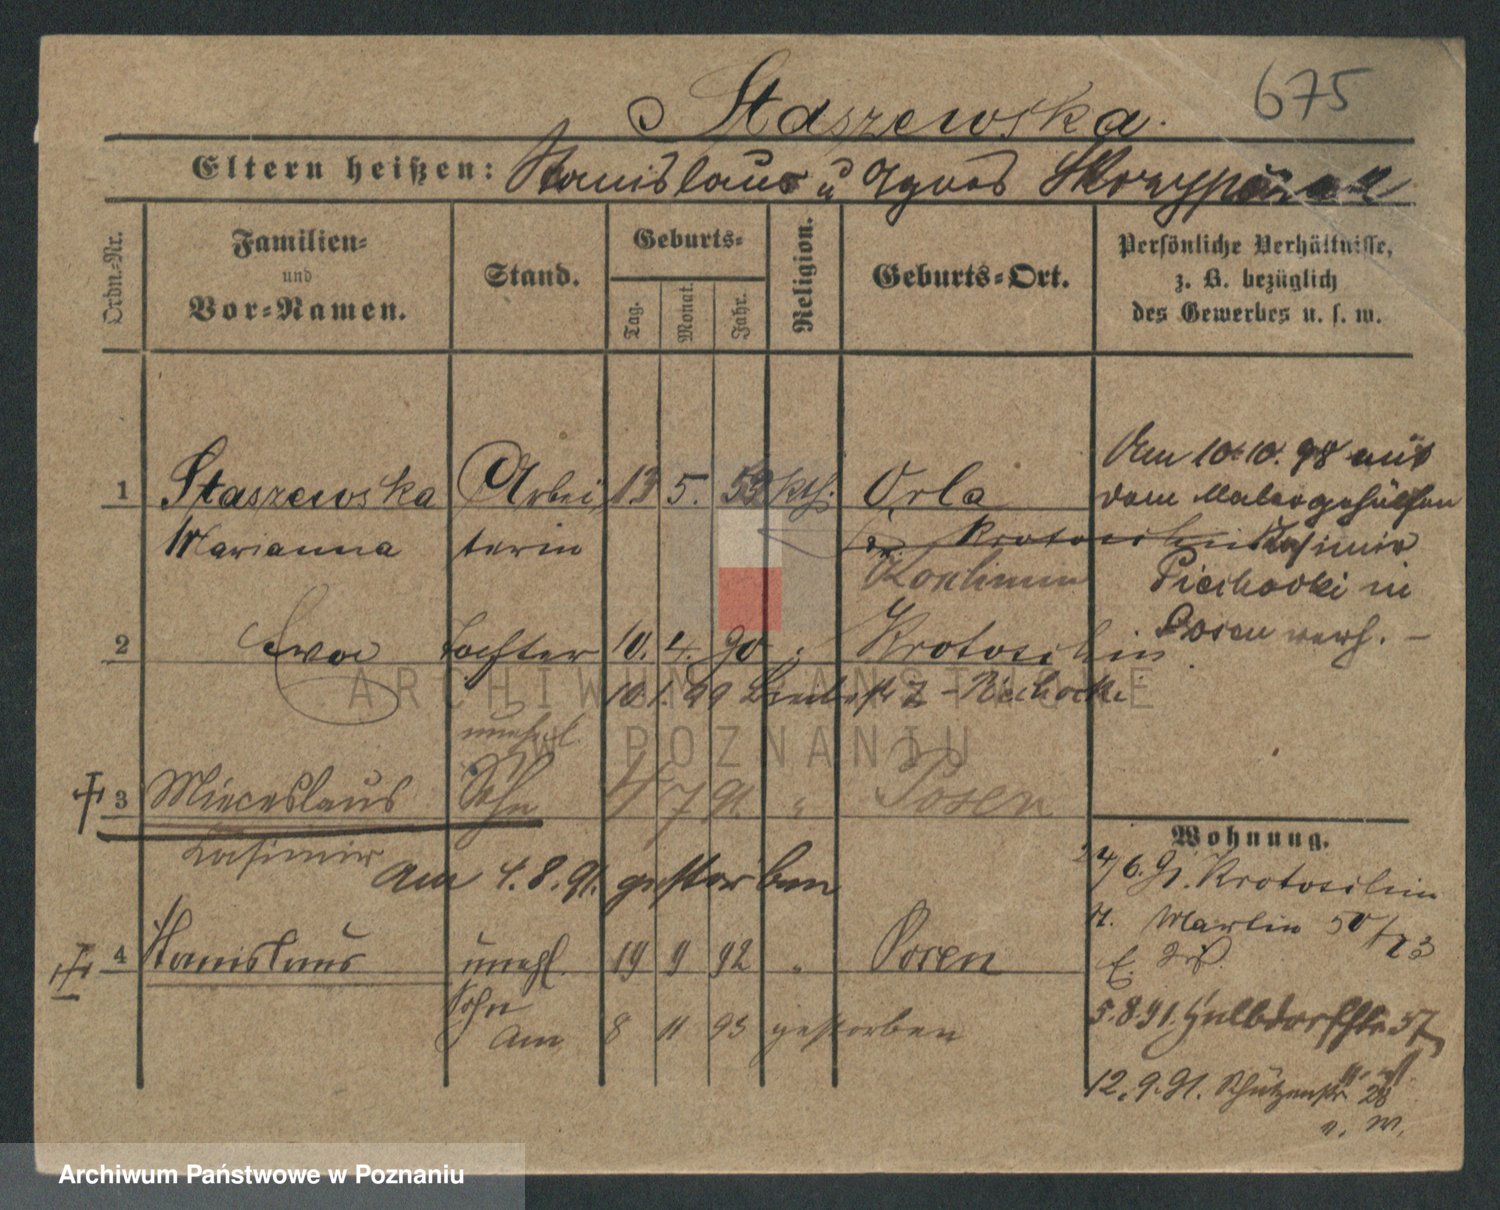 Staszewska.
675
Eltern heißen: Stanislaus u Agnes
Ordn.-Nr.
Familien-
und
Vor-Namen.
Stand.
Geburts-
Tag.
Monat.
Jahr.
Religion.
Geburts-Ort.
Persönliche Verhältnisse,
z. B. bezüglich
des Gewerbes u. s. w.
1 Staszewska Arbei 13 5. kth. Orla
Marianna terin Krotoschin
Koschmin
Am 10.10.98 mit
dem Malergehülfen
Kasimir
Piechocki in
Posen verh. –
2 Ewa Tochter 10. 4. 90 " Krotoschin
10.1.99 - Piechocki
unehel.
3 Mieceslaus Sohn 4 7 91. " Posen
Kasimir
Am 4.8.91. gestorben
4 Stanislaus unehl. 19 9 92 " Posen
Sohn
Am 8 11 93 gestorben
Wohnung.
24/6.91. Krotoschin
St. Martin 50/
5.8.91.
12.9.91. Schützenstr 28
v. W.
ARCHIWUM PAŃSTWOWE
W POZNANIU
Archiwum Państwowe w Poznaniu